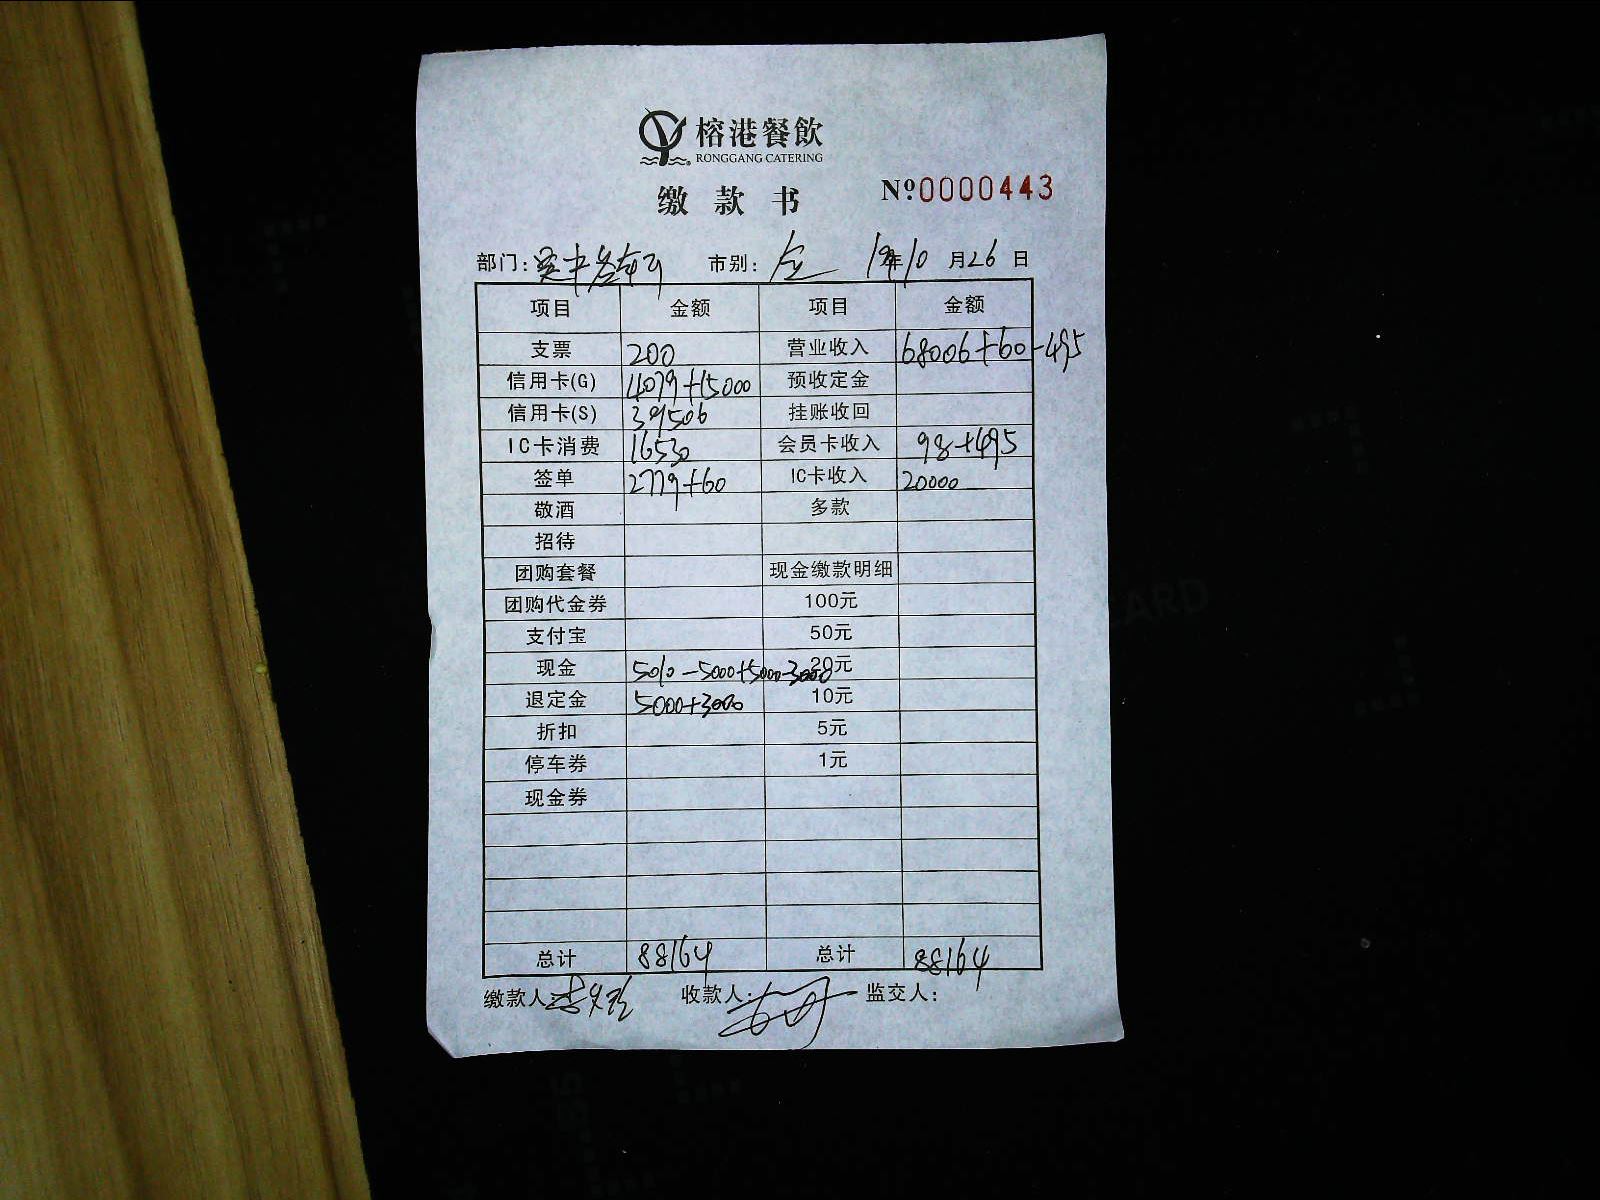 榕港餐飲
RONGGANG CATERING
缴款书 №:0000443
部门: 市别: 全 19年10月26日
项目 金额 项目 金额
支票 200 营业收入 68006+60-495
信用卡(G) 4079+15000 预收定金
信用卡(S) 39506 挂账收回
IC卡消费 16530 会员卡收入 98+495
签单 2779+60 IC卡收入 20000
敬酒 多款
招待
团购套餐 现金缴款明细
团购代金券 100元
支付宝 50元
现金 5010-5000+5000-3000 20元
退定金 5000+3000 10元
折扣 5元
停车券 1元
现金券
总计 88164 总计 88164
缴款人: 收款人: 监交人: